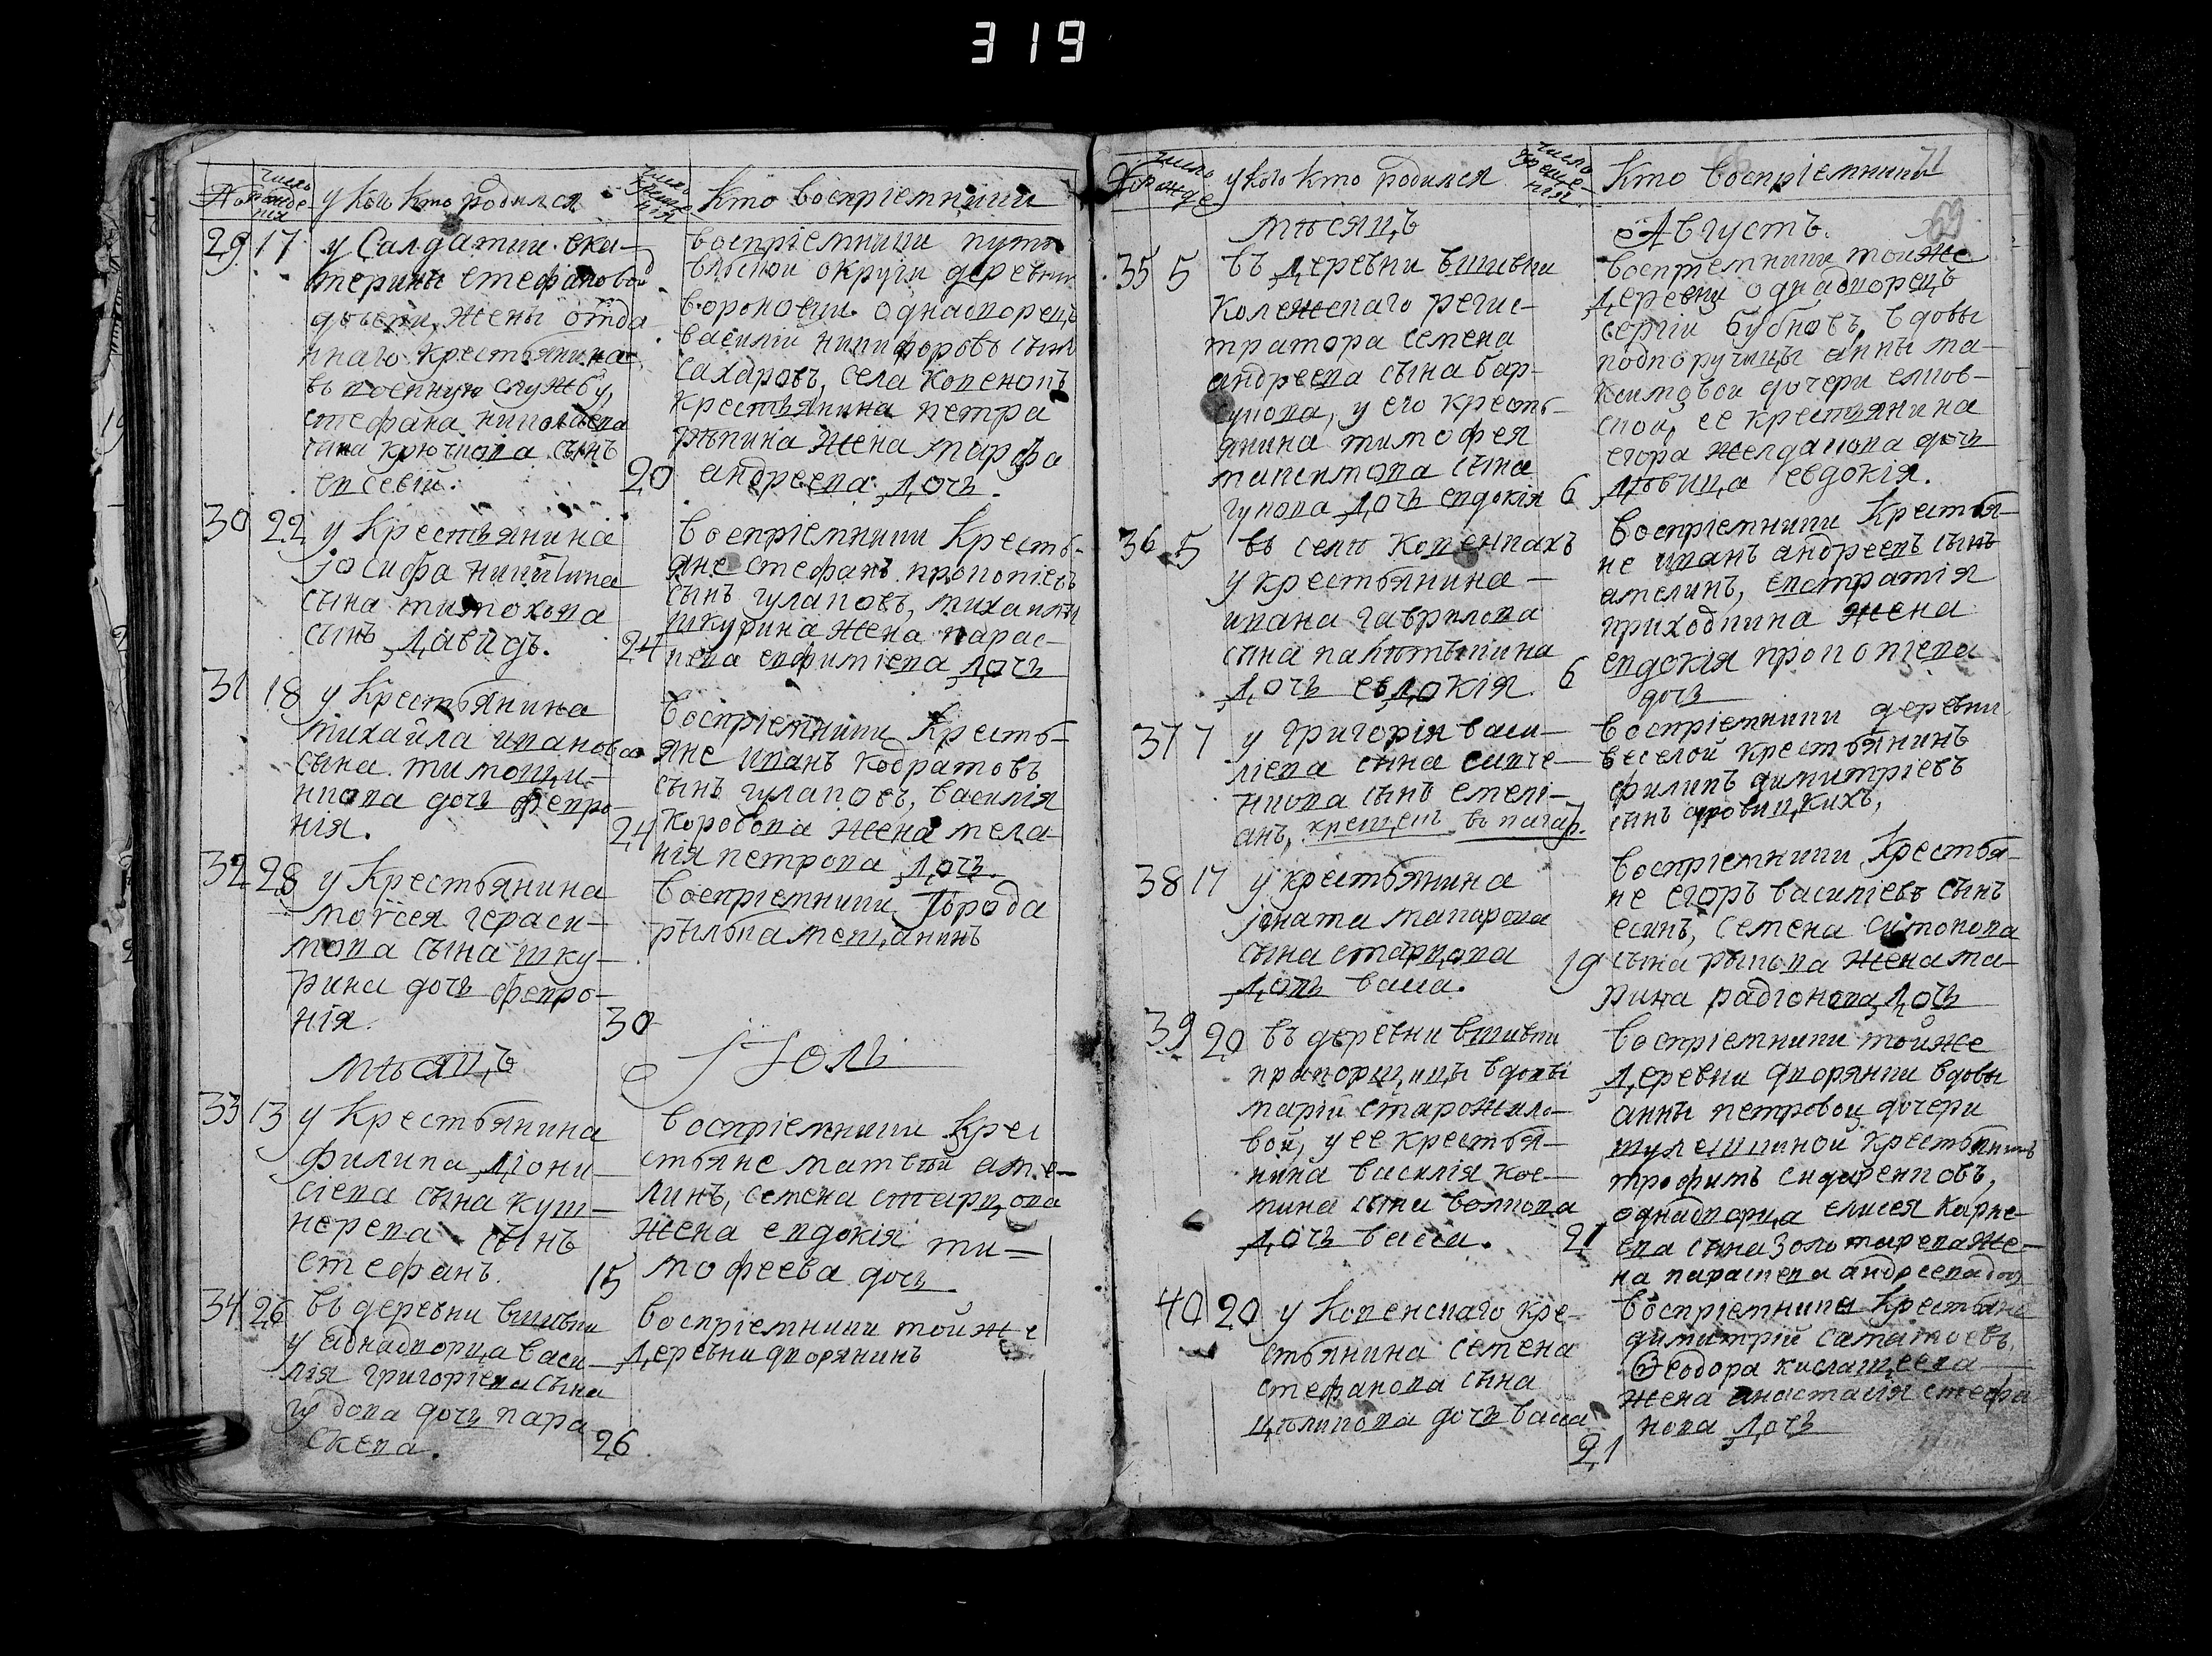 319
№
число рожде-
нія
у кого кто родился
число креще-
нія
Кто восприемники
29
17
у Салдатки ека-
терины стефановой
дочери, жены отда
ннаго крестьянина
въ военную службу,
стефана николаева
сына крючкова сынъ
евсевій.
20
восприемники путив
вльской округи деревни
вороновки однадворецъ
василій никифоровъ сынъ
сахаровъ, села Копенокъ
крестьянина петра
рѣпина жена марфа
андреева дочь.
30
22
у Крестьянина
іосифа никитина
сына тимохова
сынъ давидъ.
24
восприемники Кресть-
яне стефанъ прокопіевъ
сынъ гулаковъ, михаила
шкурина жена парас-
кева евфиміева дочь
31
18
у Крестьянина
михайла иванова
сына тимощи-
нкова дочь февро
нія.
24
восприемники Кресть-
яне иванъ кодратовъ
сынъ гулаковъ, василія
коробова жена мела-
нія петрова дочь.
32
28
у Крестьянина
моѵсея гераси-
мова сына шку-
рина дочь февро-
нія.
30
восприемники города
рыльска мещанинъ
мѣсяцъ
Іюль
33
13
у Крестьянина
филипа діони-
сіева сына куш-
нерева сынъ
стефанъ.
15
восприемники Крес
стьяне матвѣй аме-
линъ, семена старцова
жена евдокія ти-
мофеева дочь
34
26
въ деревни вшивки
у аднадворца васи-
лія григоріева сына
гудова дочь пара
скева.
26
восприемники той же
деревни дворянинъ
№
число рожде
у кого кто родился
число креще-
нія
Кто восприемники
71
69
мѣсяцъ
Августъ.
35
5
въ деревни вшивки
колежскаго регис-
тратора семена
андреева сына бар-
сукова, у его кресть-
янина тимофея
гукова дочь евдокія
6
восприемники тойже
деревни однадворецъ
сергій бубновъ, вдовы
подпоручицы анны ма-
ксимовой дочери
ее крестьянина
егора желдакова дочь
дѣвица евдокія.
36
5
въ селѣ копенкахъ
у крестьянина
ивана гаврилова
сына
дочь евдокія.
6
восприемники Крестья-
не иванъ андреевъ сынъ
амелинъ, евстратія
приходкина жена
евдокія прокопіева
дочь
37
7
у григорія васи-
ліева сына синче-
нкова сынъ емелі-
анъ, крещенъ
7
восприемники деревни
веселой крестьянинъ
филипъ димитріевъ
сынъ
38
17
у крестьянина
ігната макарова
сына старцова
дочь васса.
19
восприемники Крестья-
не егоръ василіевъ сынъ
есинъ, семена симонова
сына рыкова жена ма-
рина радіонова дочь
39
20
въ деревни вшивки
прапорщицы вдовы
маріи старожило-
вой, у ее крестья-
нина василія кос-
мина сына волкова
дочь васса.
21
восприемники тойже
деревни дворянки вдовы
анны петровой дочери
крестьянинъ
трофимъ сидоренковъ,
однадворца елисея карпе-
ева сына золотарева же-
на параскева андреева дочь
40
20
у копенскаго кре-
стьянина семена
стефанова сына
цѣликова дочь васса
21
восприемники Крестьяне
димитрій
Ѳеодора
жена анастасія стефа
нова дочь